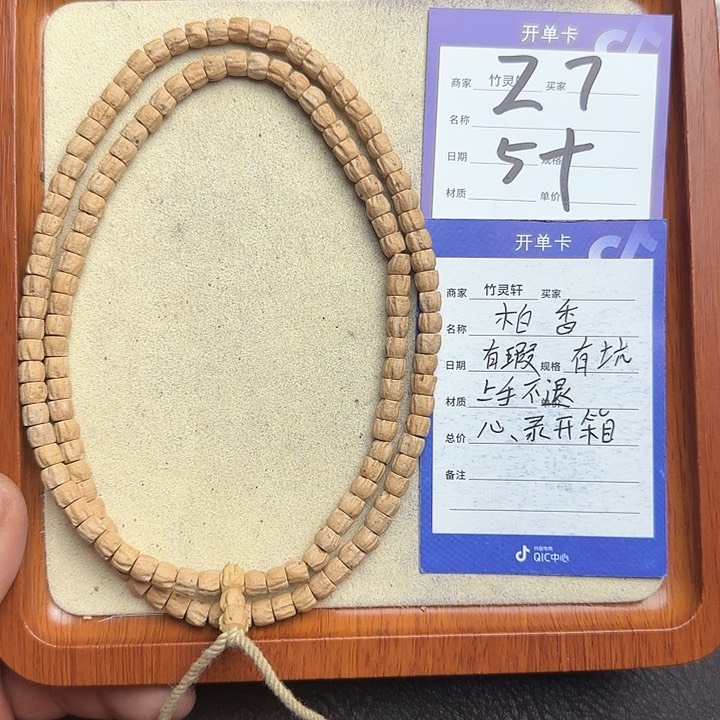 开单卡
商家 竹灵轩 买家
Z7
名称
日期 5十 规格
材质 单价
开单卡
商家 竹灵轩 买家
名称 柏香
日期 有瑕 规格 有坑
材质 上手不退
总价 心、录开箱
备注
抖音电商
QIC中心